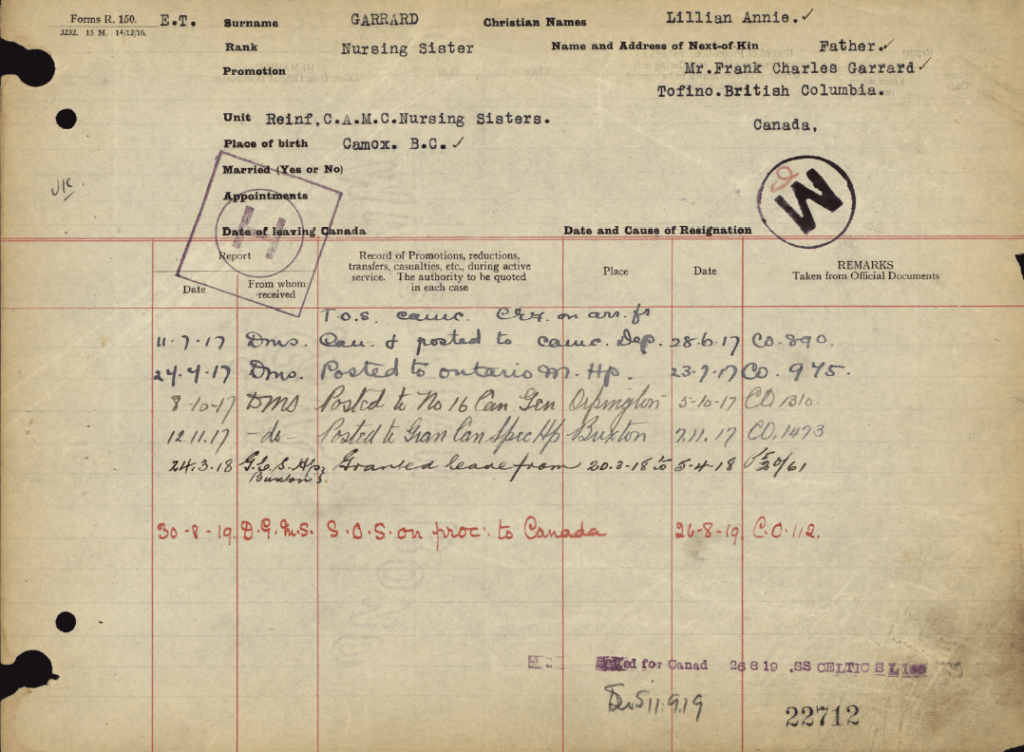 Forms R. 150.
3232. 15 M. 14/12/16.
E.T. Surname GARRARD Christian Names Lillian Annie. ✓
Rank Nursing Sister Name and Address of Next-of-Kin Father. ✓
Promotion Mr.Frank Charles Garrard ✓
Tofino.British Columbia.
Unit Reinf,C.A.M.C.Nursing Sisters. Canada,
Place of birth Camox. B.C. ✓
Married (Yes or No)
Appointments
Date of leaving Canada Date and Cause of Resignation
H
M
Report
Date From whom received
Record of Promotions, reductions,
transfers, casualties, etc., during active
service. The authority to be quoted
in each case
Place Date
REMARKS
Taken from Official Documents
T.O.S. camc. on arr. fr
11-7-17 Dms. Can. & posted to camc. Dep. 28-6-17 CO. 890.
Dms. Posted to Ontario M. Hp. 23-7-17 CO. 975.
8-10-17 DMS Posted to No 16 Can Gen Orpington 5-10-17 CO 1310
12.11.17 -do- Posted to Gran Can Spec Hp Buxton 7.11.17 CO. 1473
24.3.18 G.C.S. Hp, Buxton Granted leave from 20.3-18 to 5-4-18
30-8-19. D.G.M.S. S.O.S. on proc: to Canada 26-8-19. C.O.112.
ed for Canad 26 8 19 .SS CELTIC
11.9.19
22712